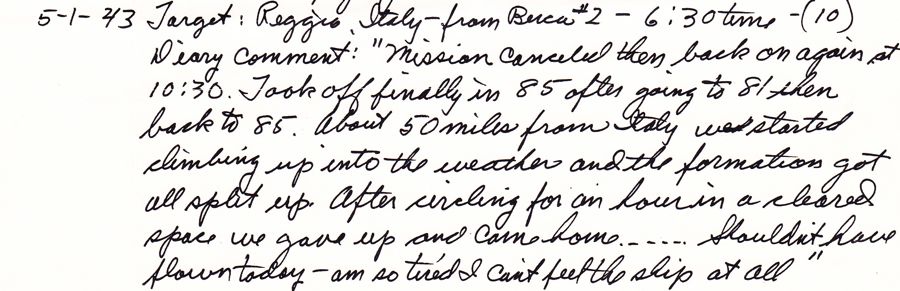 5-1-43 Target: Reggio, Italy - from Berca #2 - 6:30 time - (10)
Diary comment: "Mission canceled then back on again at
10:30. Took off finally in 85 after going to 81 then
back to 85. About 50 miles from Italy we started
climbing up into the weather and the formation got
all split up. After circling for an hour in a cleared
space we gave up and came home...... Shouldn't have
flown today - am so tired I can't feel the ship at all"